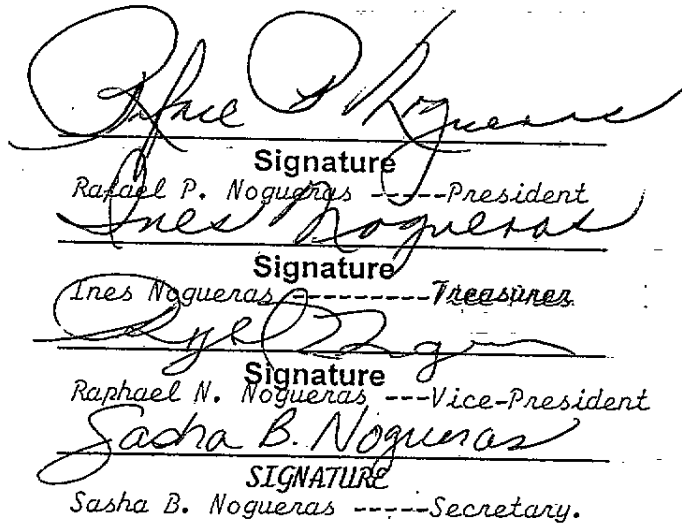 Rafael P Nogueras
Signature
Rafael P. Nogueras -----President
Ines Nogueras
Signature
Ines Nogueras ----------Treasurer
Signature
Raphael N. Nogueras ---Vice-President
Sasha B. Nogueras
SIGNATURE
Sasha B. Nogueras -----Secretary.